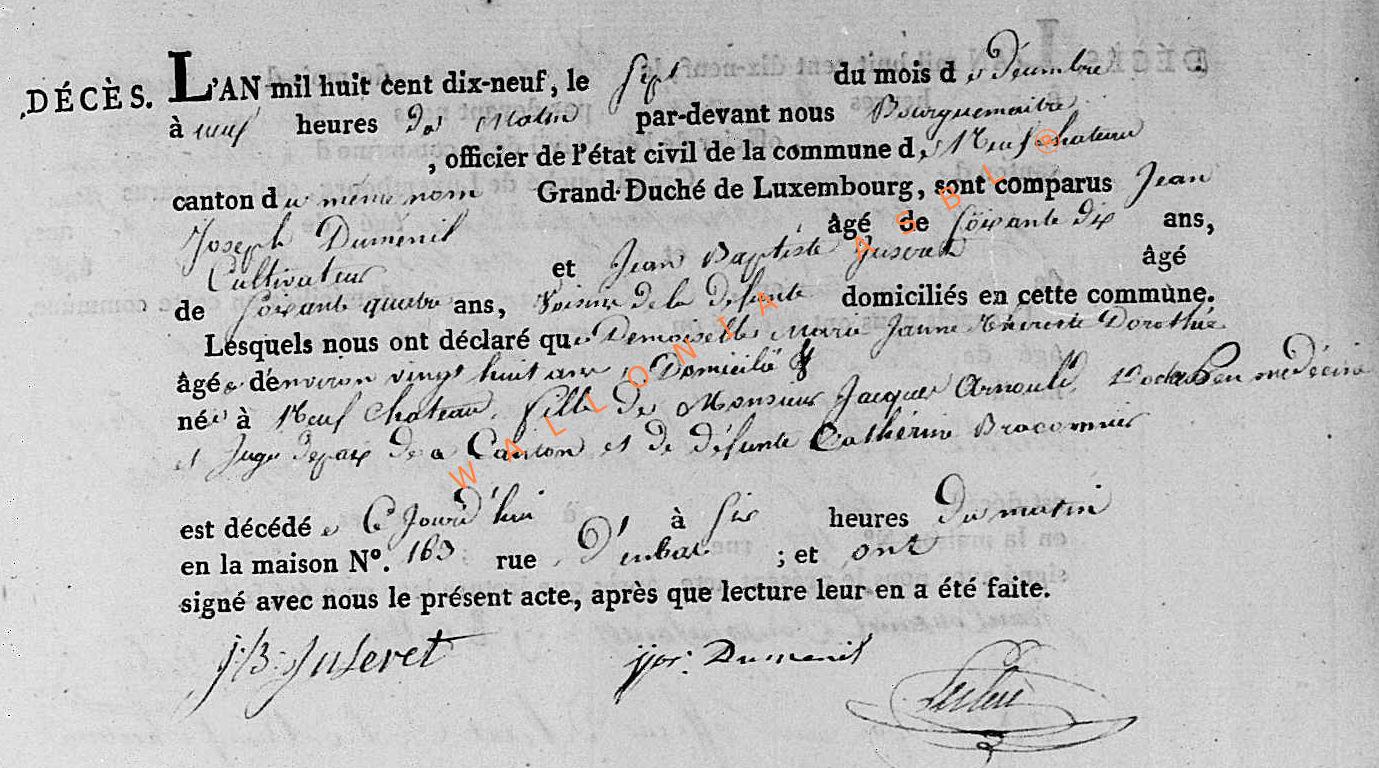 DÉCÈS. L'AN mil huit cent dix-neuf, le Sept du mois de Décembre
à neuf heures du Matin par-devant nous Bourguemaitre
, officier de l'état civil de la commune de Neufchateau
canton du meme nom Grand-Duché de Luxembourg, sont comparus Jean
Joseph Dumenil âgé de soixante dix ans,
Cultivateur et Jean Baptiste Juseret âgé
de soixante quatre ans, Voisins de la défunte domiciliés en cette commune.
Lesquels nous ont déclaré que Demoiselle Marie Jeanne Thérèse Dorothée
âgée d'environ vingt huit ans, Domicilié &
née à Neufchateau, fille de Monsieur Jacques Arnould, Docteur en médécine
et Juge depaix de a Canton et de défunte Cathérine Braconnier
est décédée Ce Jourd'hui à Six heures du matin
en la maison No. 163 rue ; et ont
signé avec nous le présent acte, après que lecture leur en a été faite.
J:B: Juseret jjos: Dumenil
WALLONIA ASBL ®